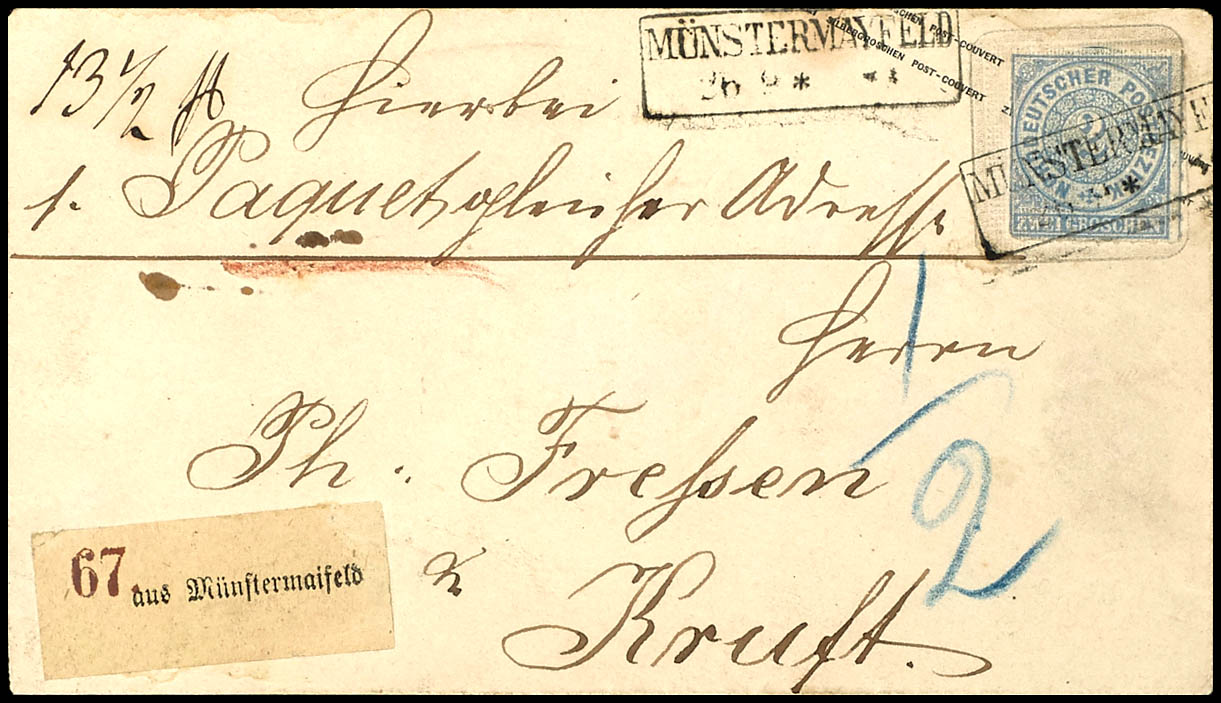 13 1/2 ℔ Hierbei
1. Paquet gleicher Adresse
Herrn
Ph. Fressen
Kruft.
MÜNSTERMAYFELD
26 9 *
SILBERGROSCHEN POST-COUVERT
POST-COUVERT
NORDDEUTSCHER POSTBEZIRK
ZWEI GROSCHEN
MÜNSTERMAYF
1/2
67. aus Münstermaifeld